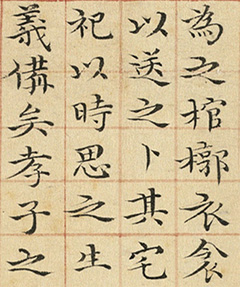 為之棺槨衣衾
以送之卜其宅
祀以時思之生
義備矣孝子之